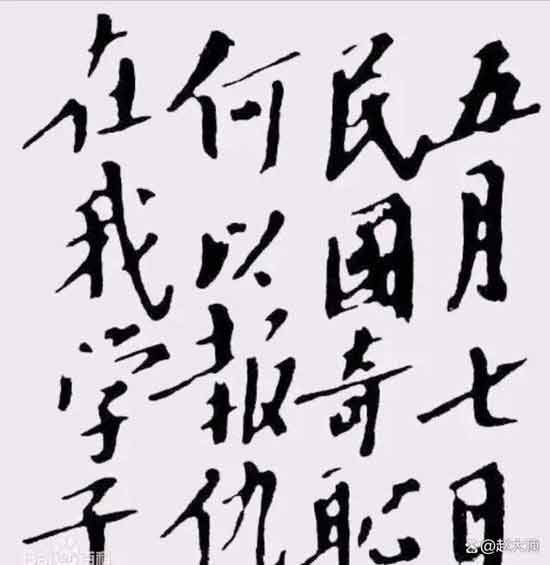 五月七日
民國奇耻
何以報仇
在我学子
Bai百科
@赵大涌